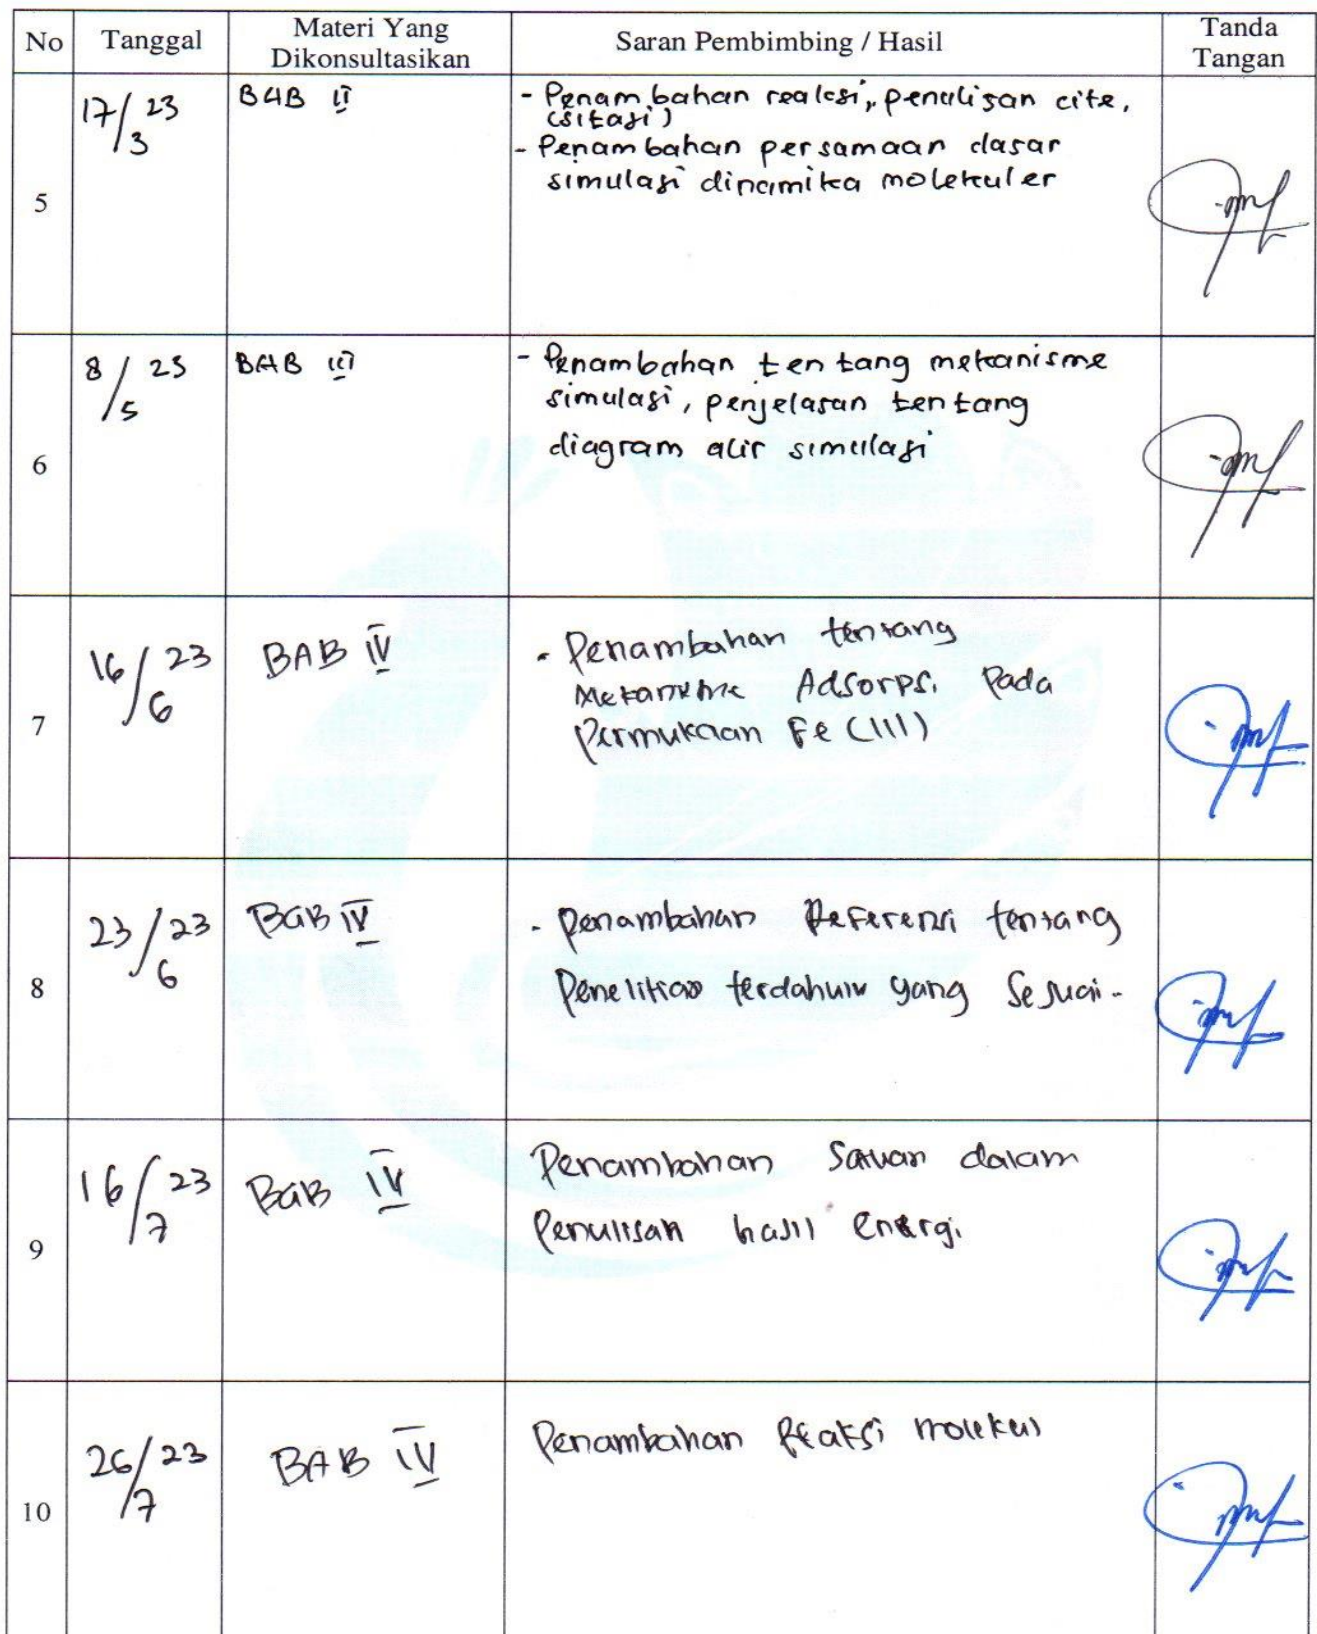 No Tanggal Materi Yang Dikonsultasikan Saran Pembimbing / Hasil Tanda Tangan
5 17/3 23 BAB II - Penambahan reaksi, penulisan cite,
(sitasi)
- Penambahan persamaan dasar
simulasi dinamika molekuler
6 8/5 23 BAB III - Penambahan tentang mekanisme
simulasi, penjelasan tentang
diagram alir simulasi
7 16/6 23 BAB IV - Penambahan tentang
Mekanisme Adsorpsi Pada
Permukaan Fe (111)
8 23/6 23 BAB IV - Penambahan Referensi tentang
Penelitian terdahulu yang Sesuai.
9 16/7 23 BAB IV Penambahan Satuan dalam
Penulisan hasil Energi
10 26/7 23 BAB IV Penambahan Reaksi molekul